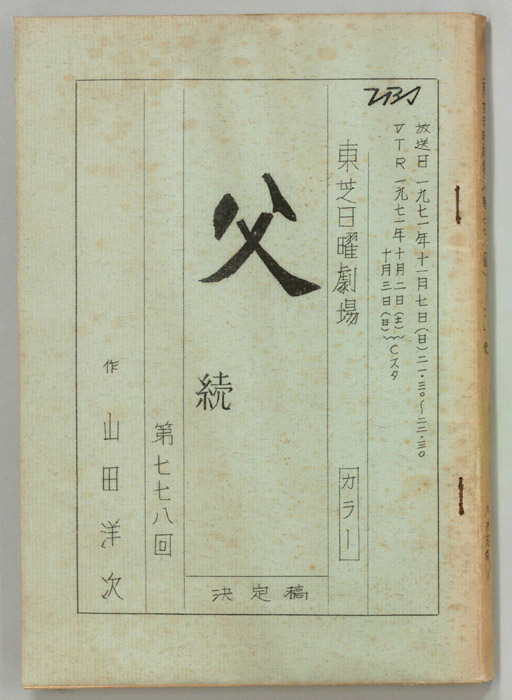 TBS
放送日 一九七一年十一月七日(日)二一・三〇〜二二・三〇
VTR 一九七一年十月二日(土)
十月三日(日)〉Cスタ
東芝日曜劇場
カラー
父
続
決定稿
第七七八回
作 山田洋次